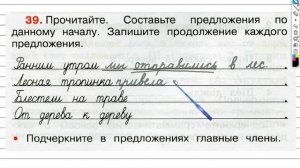 39. Прочитайте. Составьте предложения по
данному началу. Запишите продолжение каждого
предложения.
Ранним утром мы отправились в лес.
Лесная тропинка привела
Блестел на траве
От дерева к дереву
• Подчеркните в предложениях главные члены.